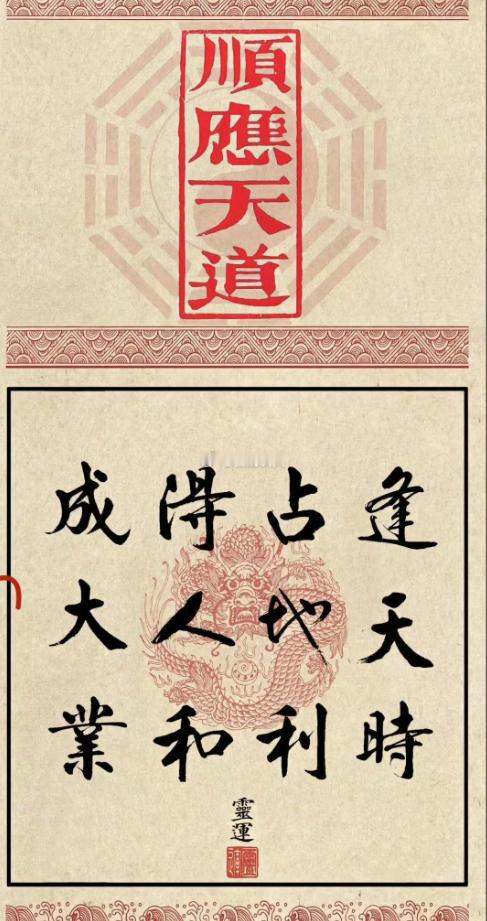 順應天道
逢天時
占地利
得人和
成大業
靈運